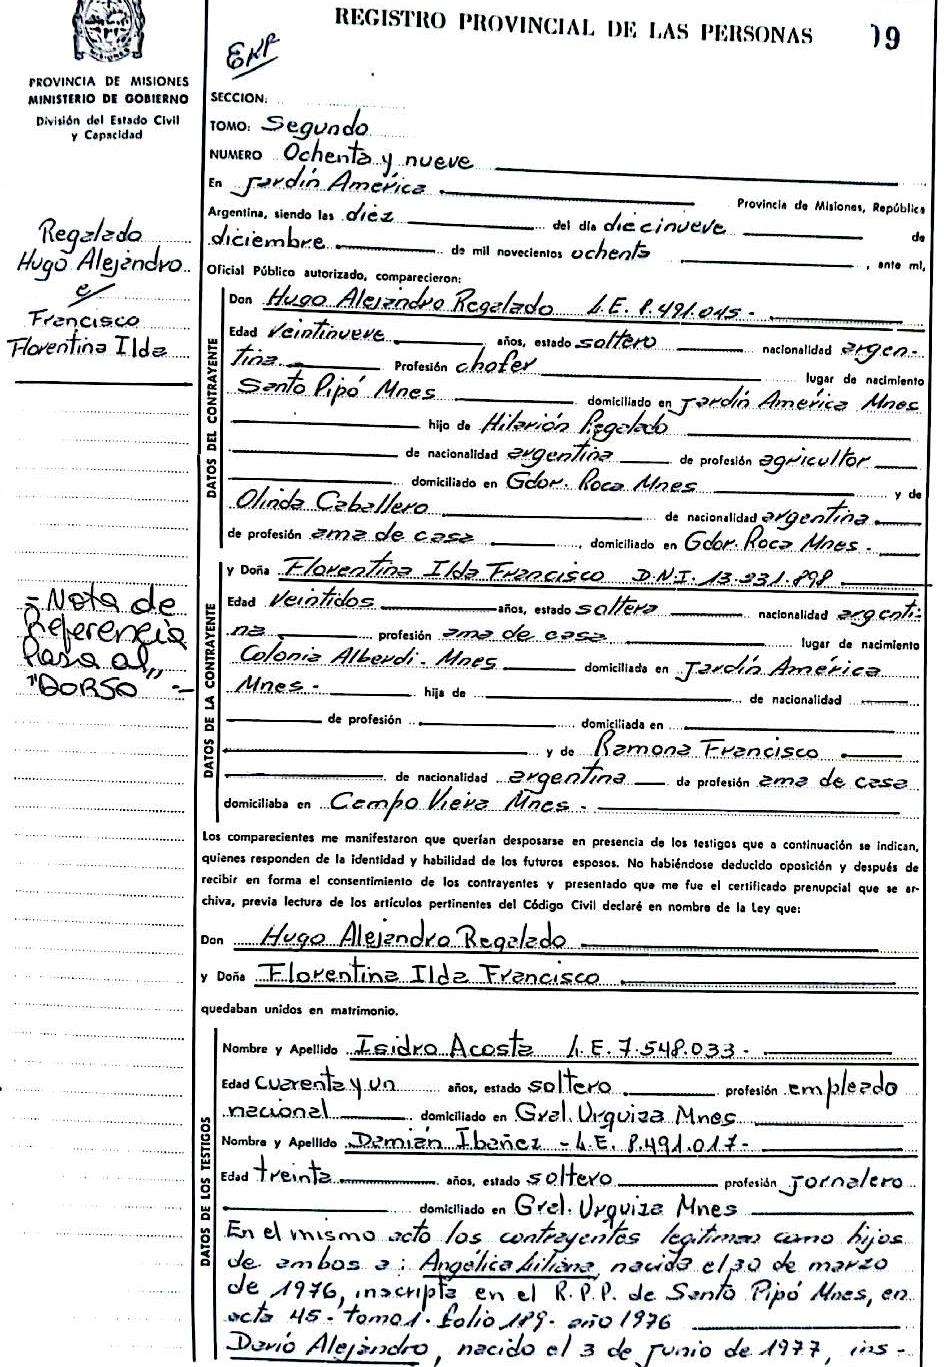 REGISTRO PROVINCIAL DE LAS PERSONAS
PROVINCIA DE MISIONES
MINISTERIO DE GOBIERNO
División del Estado Civil
y Capacidad
Regalado
Hugo Alejandro
e/
Francisco
Florentina Ilda
- Nota de
Referencia
Pasa al
"DORSO" -
SECCION:
TOMO: Segundo
NUMERO Ochenta y nueve
En Jardín América Provincia de Misiones, República
Argentina, siendo las diez del día diecinueve de
diciembre de mil novecientos ochenta, ante mí,
Oficial Público autorizado, comparecieron:
DATOS DEL CONTRAYENTE
Don Hugo Alejandro Regalado L.E. 8.491.015 -
Edad Veintinueve años, estado soltero nacionalidad argen-
tina Profesión chofer lugar de nacimiento
Santo Pipó Mnes domiciliado en Jardín América Mnes
hijo de Hilarión Regalado
de nacionalidad argentina de profesión agricultor
domiciliado en Gdor. Roca Mnes y de
Olinda Caballero de nacionalidad argentina
de profesión ama de casa, domiciliado en Gdor. Roca Mnes -
DATOS DE LA CONTRAYENTE
y Doña Florentina Ilda Francisco D.N.I. 13.331.898
Edad Veintidos años, estado soltera nacionalidad argenti-
na profesión ama de casa lugar de nacimiento
Colonia Alberdi - Mnes domiciliada en Jardín América
Mnes - hija de de nacionalidad
de profesión domiciliada en
y de Ramona Francisco
de nacionalidad argentina de profesión ama de casa
domiciliaba en Campo Viera Mnes -
Los comparecientes me manifestaron que querían desposarse en presencia de los testigos que a continuación se indican,
quienes responden de la identidad y habilidad de los futuros esposos. No habiéndose deducido oposición y después de
recibir en forma el consentimiento de los contrayentes y presentado que me fue el certificado prenupcial que se ar-
chiva, previa lectura de los artículos pertinentes del Código Civil declaré en nombre de la Ley que:
Don Hugo Alejandro Regalado
y Doña Florentina Ilda Francisco
quedaban unidos en matrimonio.
DATOS DE LOS TESTIGOS
Nombre y Apellido Isidro Acosta L.E. 7.548.033 -
Edad Cuarenta y un años, estado soltero profesión empleado
nacional domiciliado en Gral. Urquiza Mnes
Nombre y Apellido Damián Ibañez - L.E. 8.491.017 -
Edad treinta años, estado soltero profesión jornalero
domiciliado en Gral. Urquiza Mnes
En el mismo acto los contrayentes legitiman como hijos
de ambos a: Angélica Liliana, nacida el 30 de marzo
de 1976, inscripta en el R.P.P. de Santo Pipó Mnes, en
acta 45 - tomo 1 - folio 189 - año 1976
Darío Alejandro, nacido el 3 de junio de 1977, ins-